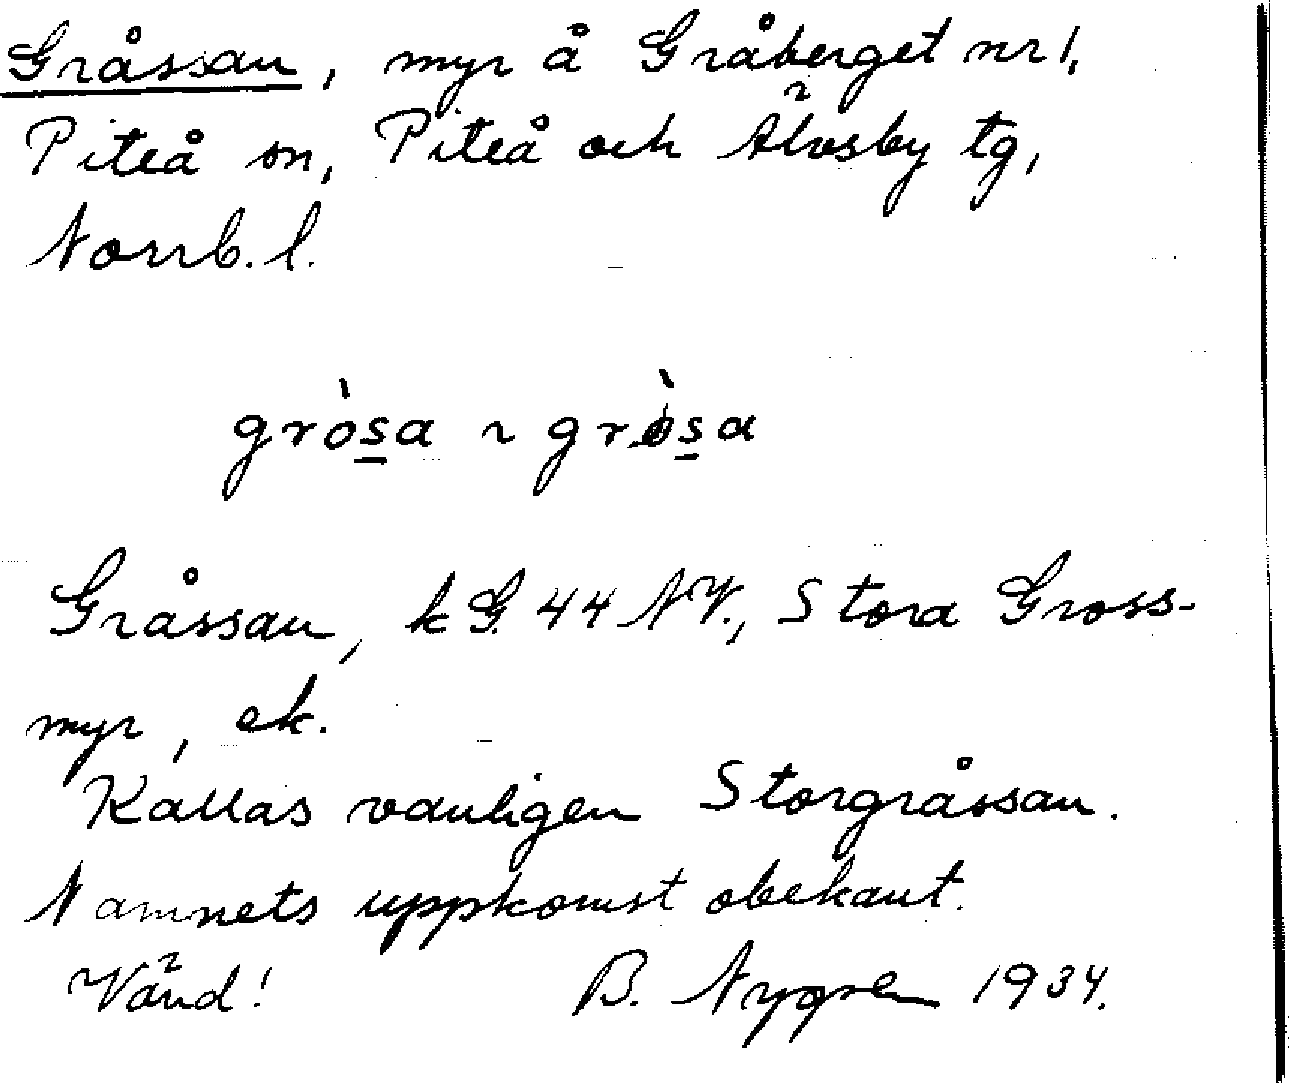 Gråssan, myr å Gråberget nr 1,
Piteå sn, Piteå och Älvsby tg,
Norrb. l.
gròsa ~ gròsa
Gråssan, k G. 44 NV., Stora Gross-
myr, ek.
Kallas vanligen Storgråssan.
Namnets uppkomst obekant.
Vänd! B. Nygren 1934.